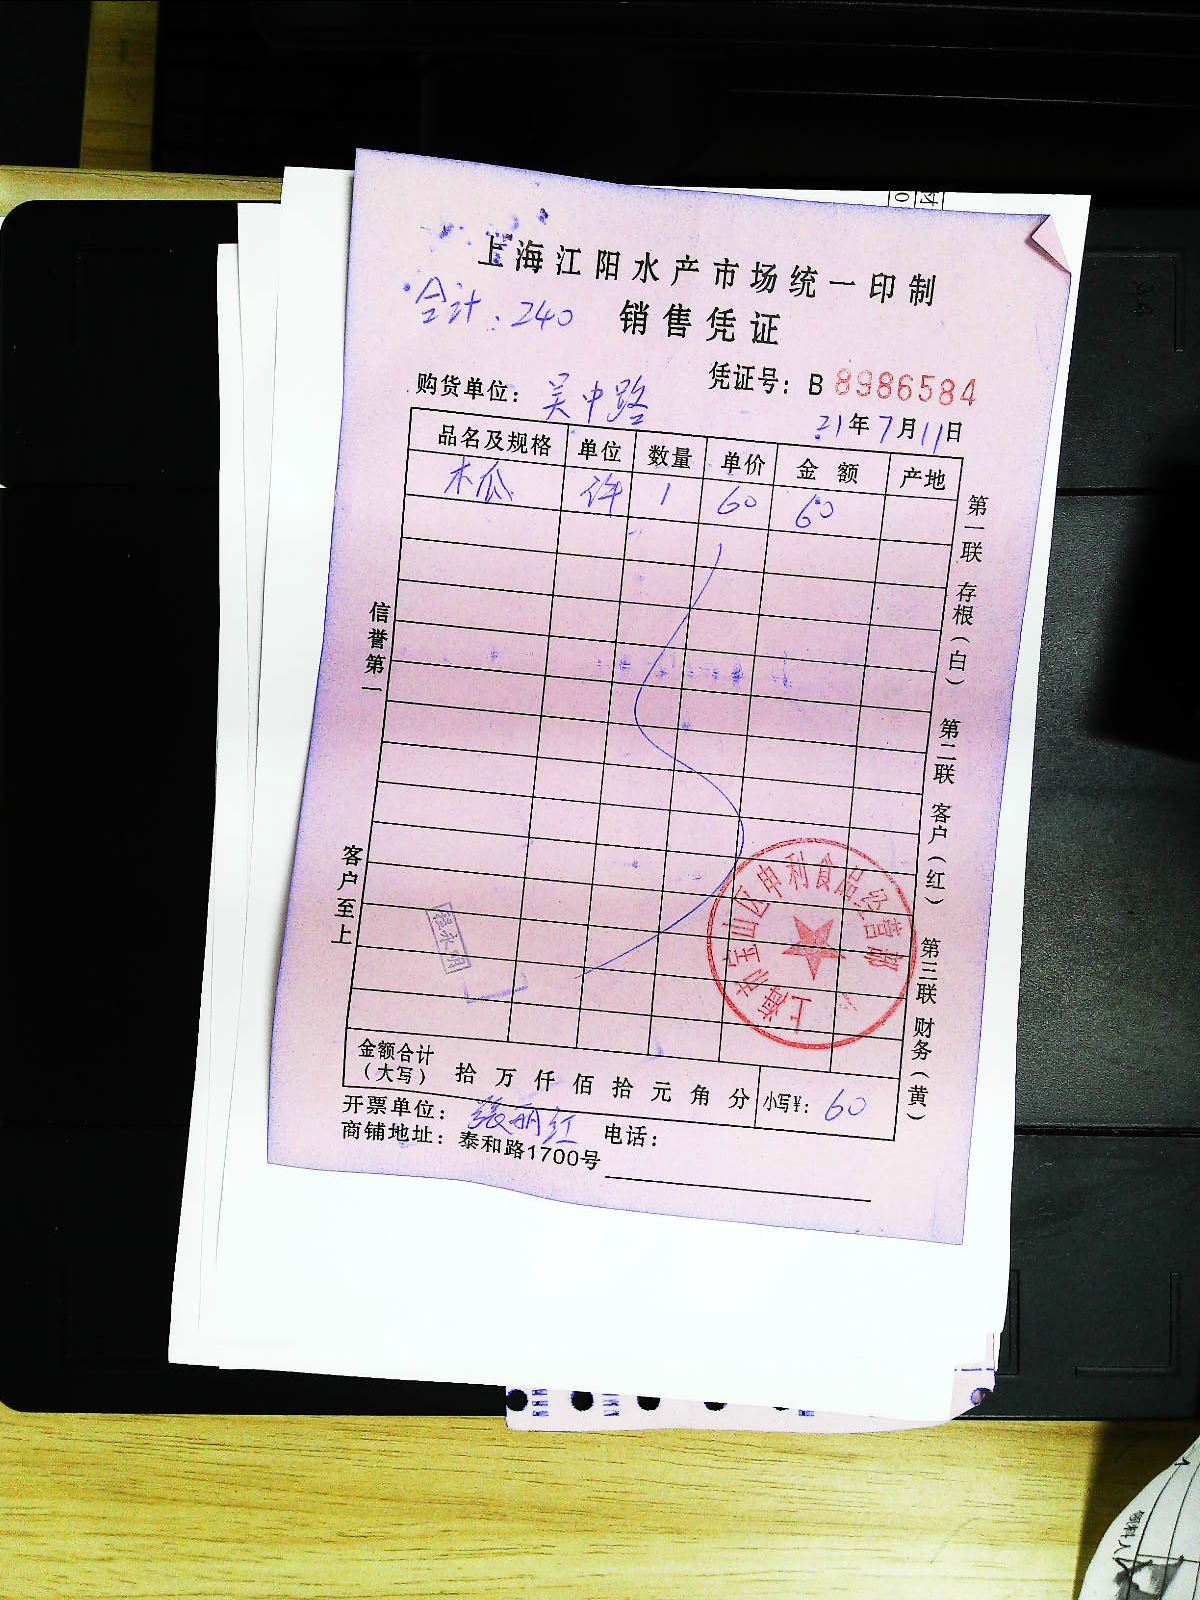 上海江阳水产市场统一印制
合计：240
销售凭证
购货单位：吴中路
凭证号：B 8986584
21年7月11日
品名及规格 单位 数量 单价 金额 产地
木瓜 件 1 60 60
信誉第一
客户至上
第一联 存根（白） 第二联 客户（红） 第三联 财务（黄）
上海市宝山区申利食品经营部
金额合计（大写） 拾 万 仟 佰 拾 元 角 分 小写¥：60
开票单位：张丽红 电话：
商铺地址：泰和路1700号
领料人